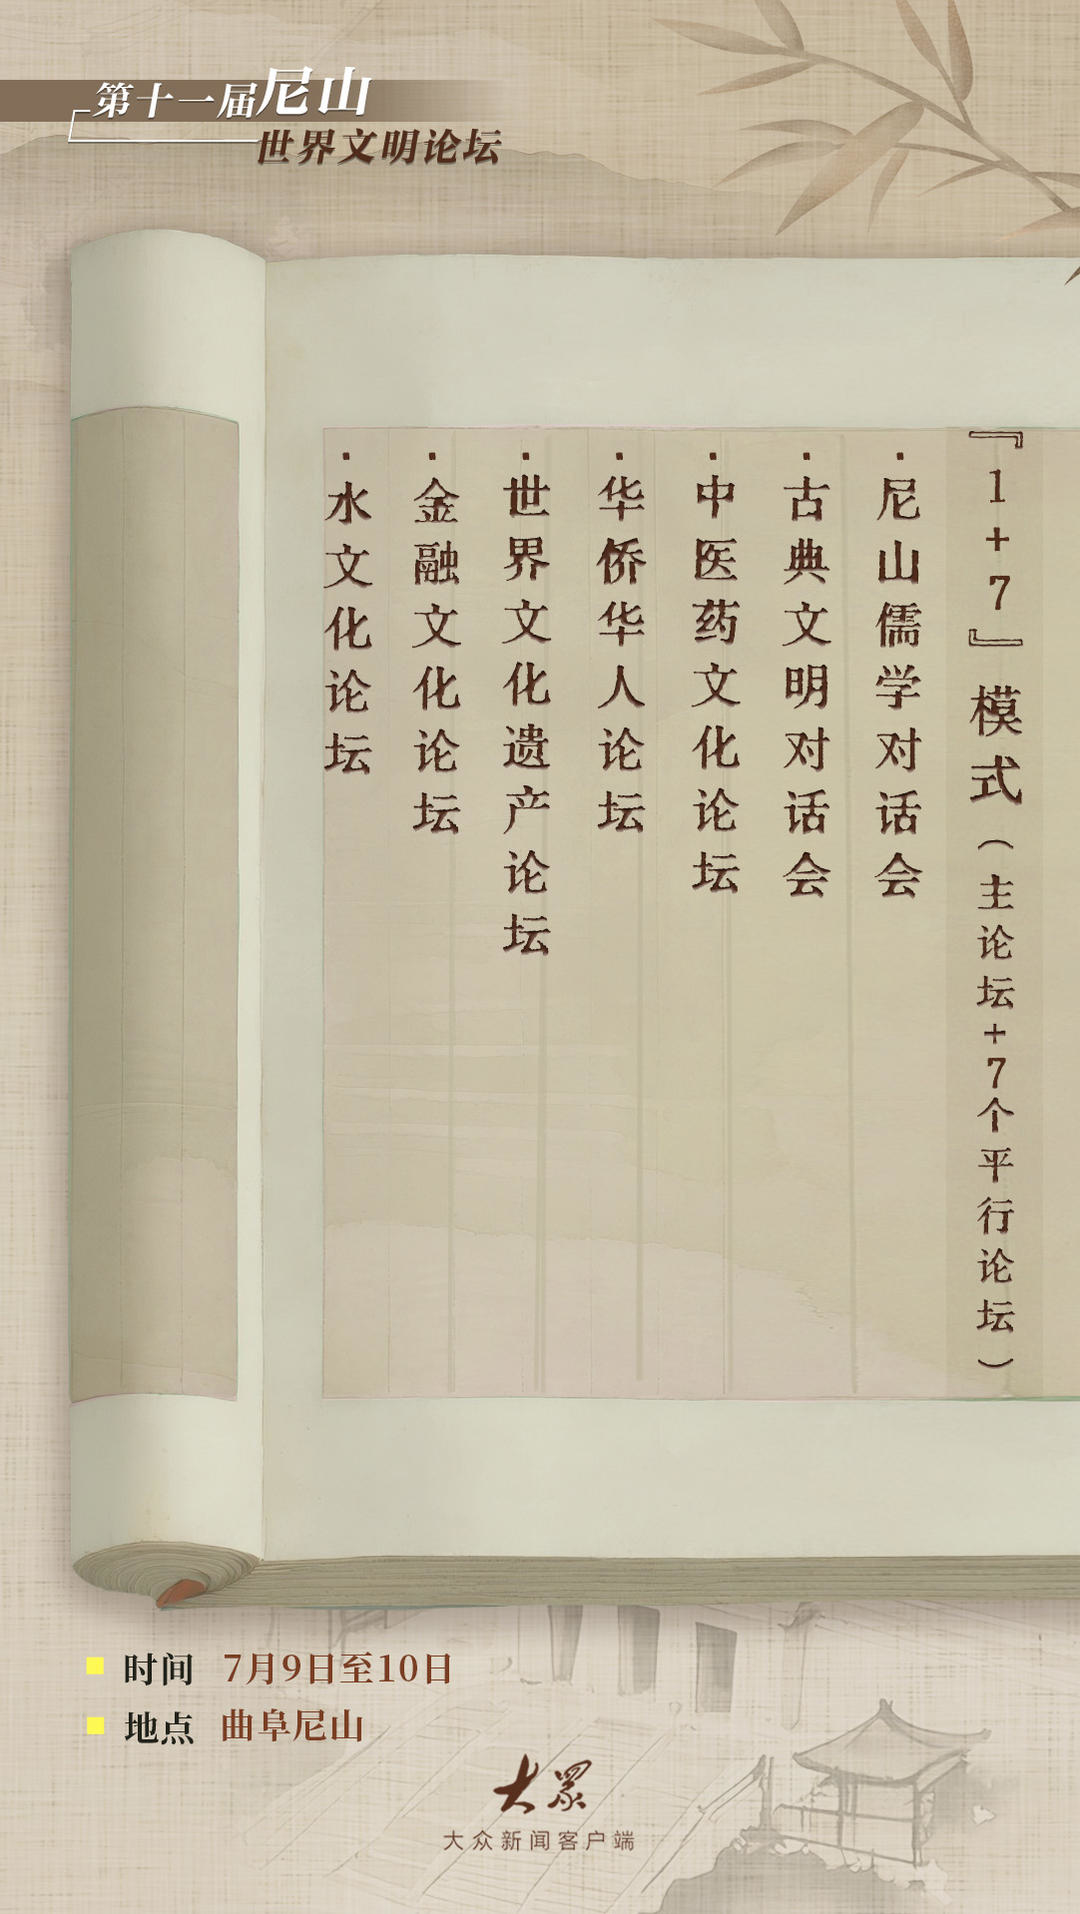 第十一届尼山
世界文明论坛
『1+7』模式（主论坛+7个平行论坛）
·尼山儒学对话会
·古典文明对话会
·中医药文化论坛
·华侨华人论坛
·世界文化遗产论坛
·金融文化论坛
·水文化论坛
时间 7月9日至10日
地点 曲阜尼山
大眾
大众新闻客户端